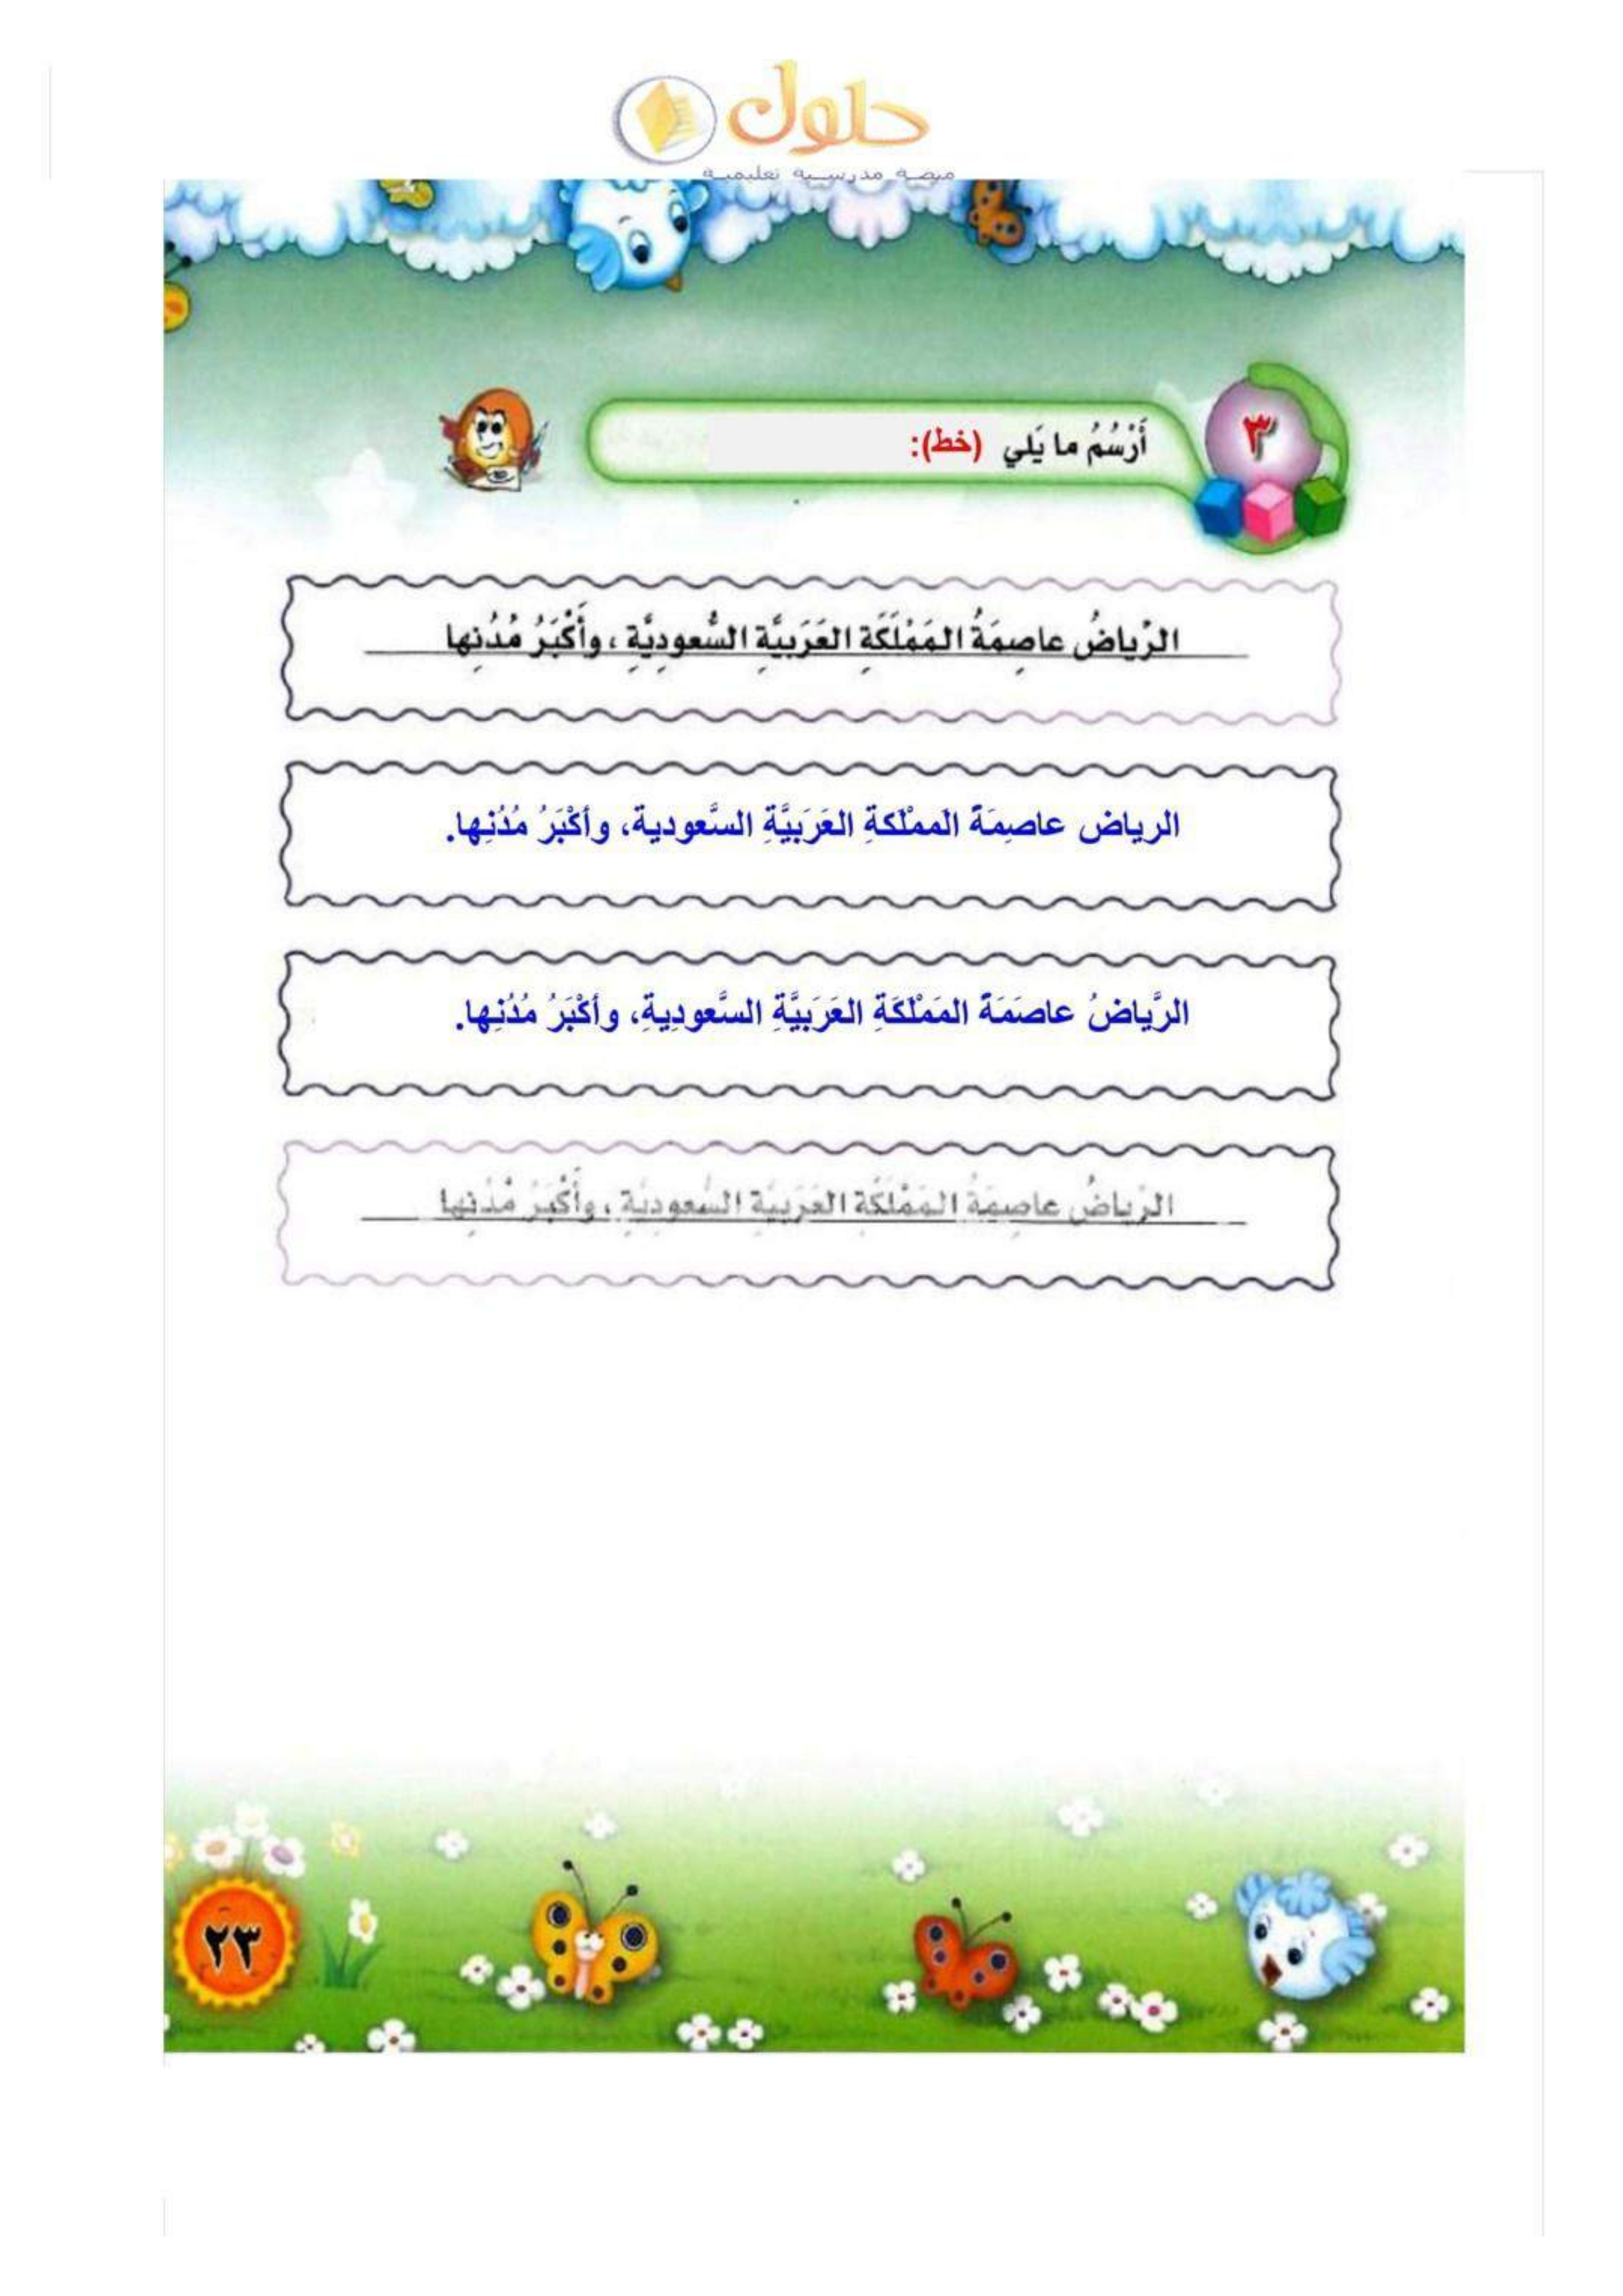 حلول
منصة مدرسية تعليمية
٣
أَرْسُمُ ما يَلي (خط):
الرِّياضُ عاصِمَةُ المَمْلَكَةِ العَرَبيَّةِ السُّعودِيَّةِ ، وأَكْبَرُ مُدُنِها
الرياض عاصِمَةً المَمْلَكةِ العَرَبيَّةِ السَّعودية، وأكْبَرُ مُدُنِها.
الرَّياضُ عاصَمَةً المَمْلَكَةِ العَرَبيَّةِ السَّعودِيةِ، وأكْبَرُ مُدُنِها.
الرِّياضُ عاصِمَةُ المَمْلَكَةِ العَرَبيَّةِ السُّعودِيَّةِ ، وأَكْبَرُ مُدُنِها
٢٣